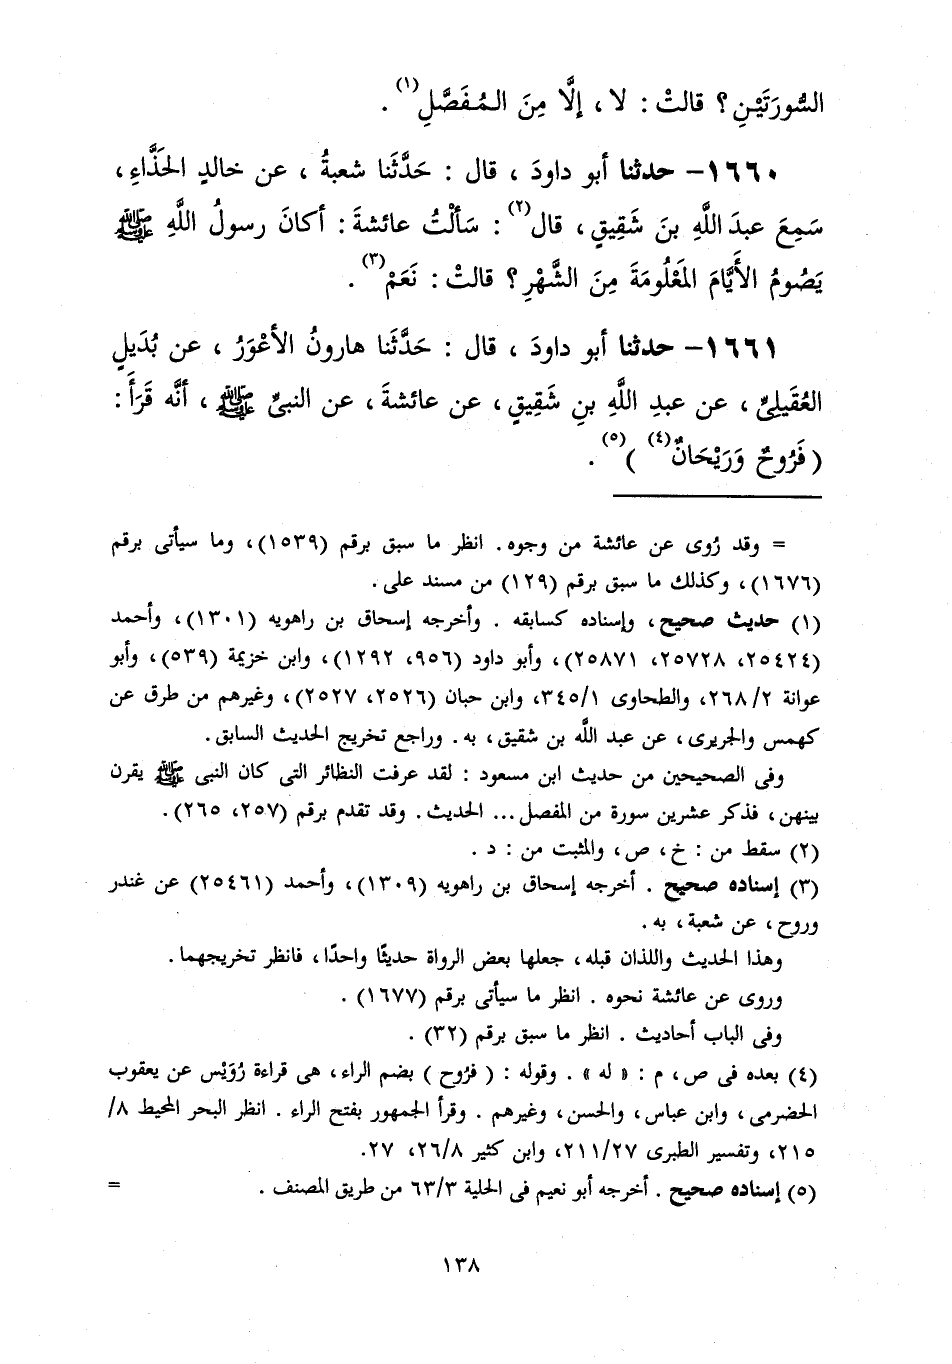 السُّورَتَيْنِ ؟ قالتْ : لا ، إلَّا مِنَ الـمُفَصَّلِ(١) .
١٦٦٠- حدثنا أبو داودَ ، قال : حَدَّثَنا شعبةُ ، عن خالدٍ الحَذَّاءِ ،
سَمِعَ عبدَ اللَّهِ بنَ شَقِيقٍ ، قال(٢) : سَألْتُ عائشةَ : أكانَ رسولُ اللَّهِ ﷺ
يَصُومُ الأَيَّامَ المَعْلُومَةَ مِنَ الشَّهْرِ ؟ قالتْ : نَعَمْ(٣) .
١٦٦١- حدثنا أبو داودَ ، قال : حَدَّثَنا هارونُ الأعْوَرُ ، عن بُدَيلٍ
العُقَيلِىِّ ، عن عبدِ اللَّهِ بنِ شَقِيقٍ ، عن عائشةَ ، عن النبىِّ ﷺ ، أنَّه قَرَأَ :
( فَرُوحٌ وَرَيْحَانٌ(٤) )(٥) .
= وقد رُوى عن عائشة من وجوه . انظر ما سبق برقم (١٥٣٩) ، وما سيأتى برقم
(١٦٧٦) ، وكذلك ما سبق برقم (١٢٩) من مسند على .
(١) حديث صحيح ، وإسناده كسابقه . وأخرجه إسحاق بن راهويه (١٣٠١) ، وأحمد
(٢٥٤٢٤، ٢٥٧٢٨، ٢٥٨٧١) ، وأبو داود (٩٥٦، ١٢٩٢) ، وابن خزيمة (٥٣٩) ، وأبو
عوانة ٢/ ٢٦٨، والطحاوى ١/ ٣٤٥، وابن حبان (٢٥٢٦، ٢٥٢٧) ، وغيرهم من طرق عن
كهمس والجريرى ، عن عبد اللَّه بن شقيق ، به . وراجع تخريج الحديث السابق .
وفى الصحيحين من حديث ابن مسعود : لقد عرفت النظائر التى كان النبى ﷺ يقرن
بينهن ، فذكر عشرين سورة من المفصل ... الحديث . وقد تقدم برقم (٢٥٧، ٢٦٥) .
(٢) سقط من : خ ، ص ، والمثبت من : د .
(٣) إسناده صحيح . أخرجه إسحاق بن راهويه (١٣٠٩) ، وأحمد (٢٥٤٦١) عن غندر
وروح ، عن شعبة ، به .
وهذا الحديث واللذان قبله ، جعلها بعض الرواة حديثًا واحدًا ، فانظر تخريجهما .
وروى عن عائشة نحوه . انظر ما سيأتى برقم (١٦٧٧) .
وفى الباب أحاديث . انظر ما سبق برقم (٣٢) .
(٤) بعده فى ص ، م : « له » . وقوله : ( فرُوح ) بضم الراء ، هى قراءة رُوَيْس عن يعقوب
الحضرمى ، وابن عباس ، والحسن ، وغيرهم . وقرأ الجمهور بفتح الراء . انظر البحر المحيط ٨/
٢١٥، وتفسير الطبرى ٢٧/ ٢١١، وابن كثير ٨/ ٢٦، ٢٧.
(٥) إسناده صحيح . أخرجه أبو نعيم فى الحلية ٣/ ٦٣ من طريق المصنف . =
١٣٨